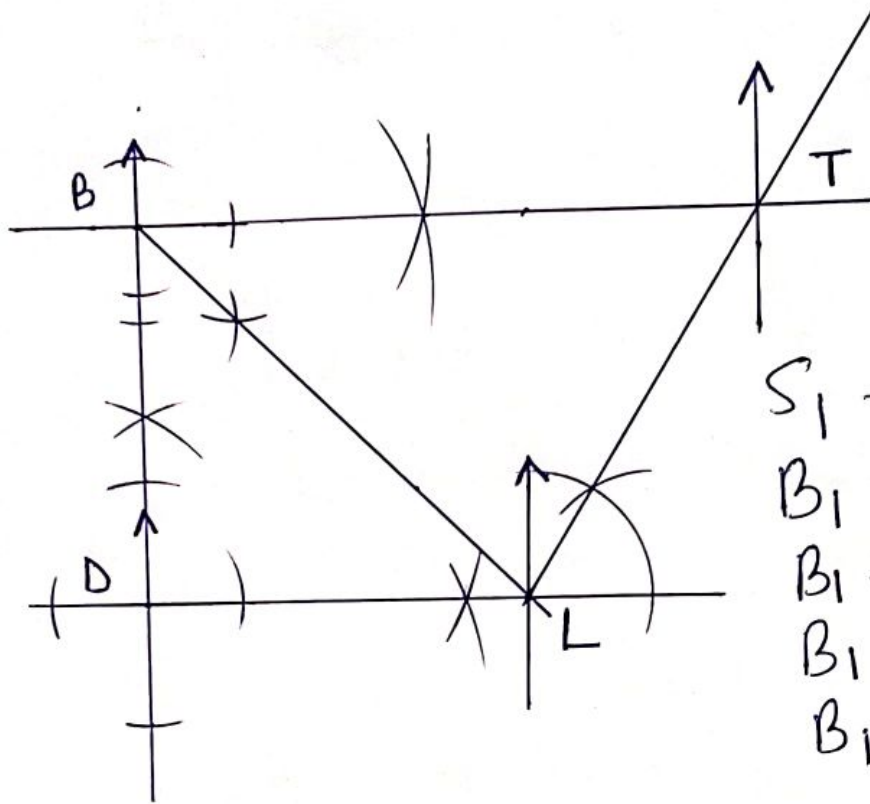 B
T
D
L
S1
B1
B1
B1
B1